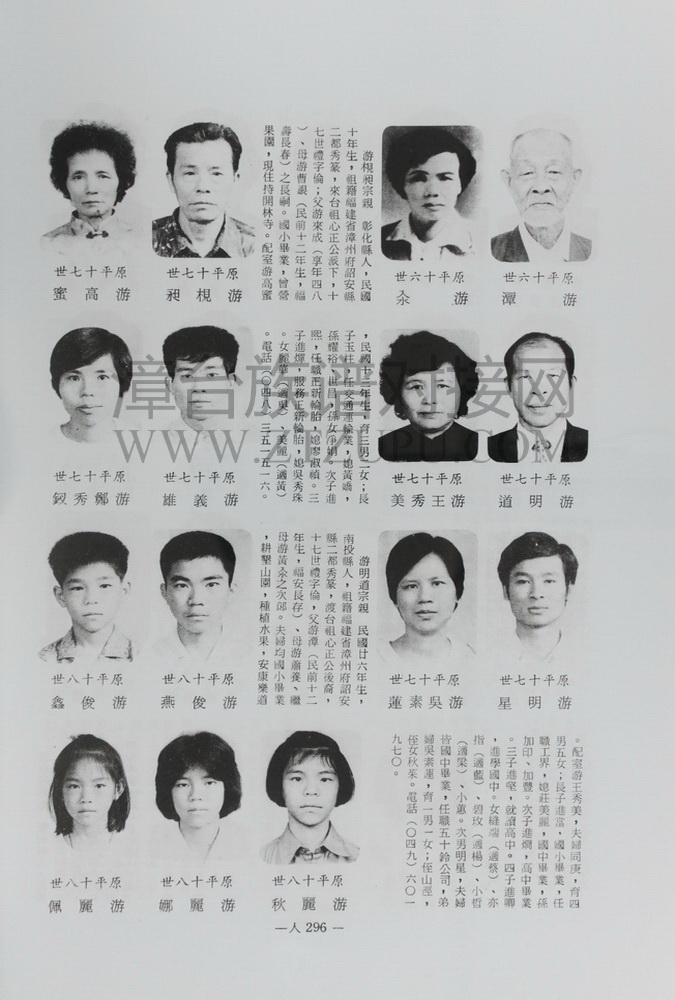 原平十六世
游潭
原平十六世
游汆
游梘昶宗親 彰化縣人，民國
十年生，祖籍福建省漳州府詔安縣
二都秀篆，來台祖心正公派下，十
七世禮字倫；父游來成（享年四八
）、母游曹
（民前十二年生，福
壽長春）之長嗣。國小畢業，曾營
果園，現住持開林寺。配室游高蜜
原平十七世
游梘昶
原平十七世
游高蜜
原平十七世
游明道
原平十七世
游王秀美
，民國十三年生，育三男二女；長
子玉柱，任交通運輸業，媳黃嬌，
孫耀裕、世昌，孫女淨娟。次子進
熙，任職正新輪胎，媳廖淑禎。三
子進煇，服務正新輪胎，媳吳秀珠
。女麗華（適吳）、美麗（適黃）
。電話（〇四八）三五一五一六。
原平十七世
游義雄
原平十七世
游鄭秀釵
原平十七世
游明星
原平十七世
游吳素蓮
游明道宗親 民國廿六年生，
南投縣人，祖籍福建省漳州府詔安
縣二都秀篆，渡台祖心正公後裔，
十七世禮字倫，父游潭（民前十二
年生，福安長存）、母游蕭養、繼
母游黃汆之次郎。夫婦均國小畢業
，耕墾山園，種植水果，安康樂道
原平十八世
游俊燕
原平十八世
游俊鑫
。配室游王秀美，夫婦同庚，育四
男五女；長子進富，國小畢業，任
職工界，媳莊美麗，國中畢業，孫
加印、加豐。次子進爛，高中畢業
。三子進堅，就讀高中。四子進卿
，進學國中。女縫端（適蔡）、亦
指（適藍）、碧玫（適楊）、小哲
（適梁）、小蕙。次男明星，夫婦
皆國中畢業，任職五十鈴公司，弟
婦吳素蓮，育一男一女；侄山涇，
侄女秋茱。電話（〇四九）六〇一
九七〇。
原平十八世
游麗秋
原平十八世
游麗娜
原平十八世
游麗佩
—人 296 —
漳台族谱对接网
WWW.ZTZUPU.COM